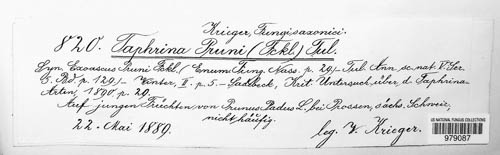 Krieger, Fungi saxonici.
820. Taphrina Pruni (Fckl.) Tul.
Syn. Exoascus Pruni Fckl. / Enum. Fung. Nass. p. 29/- Tul. Ann. sc. nat. V. Ser.
5. Bd p. 129/- Winter, II. p. 5.- Sadebeck, Krit. Untersuch. über d. Taphrina-
Arten, 1890. p. 29.
Auf jungen Früchten von Prunus Padus L. bei Prossen, sächs. Schweiz,
nicht häufig.
22. Mai 1889.
leg. W. Krieger.
US NATIONAL FUNGUS COLLECTIONS
979087